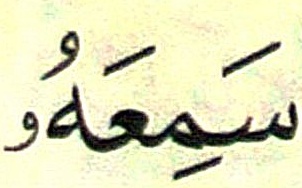 سَمِعَهُو